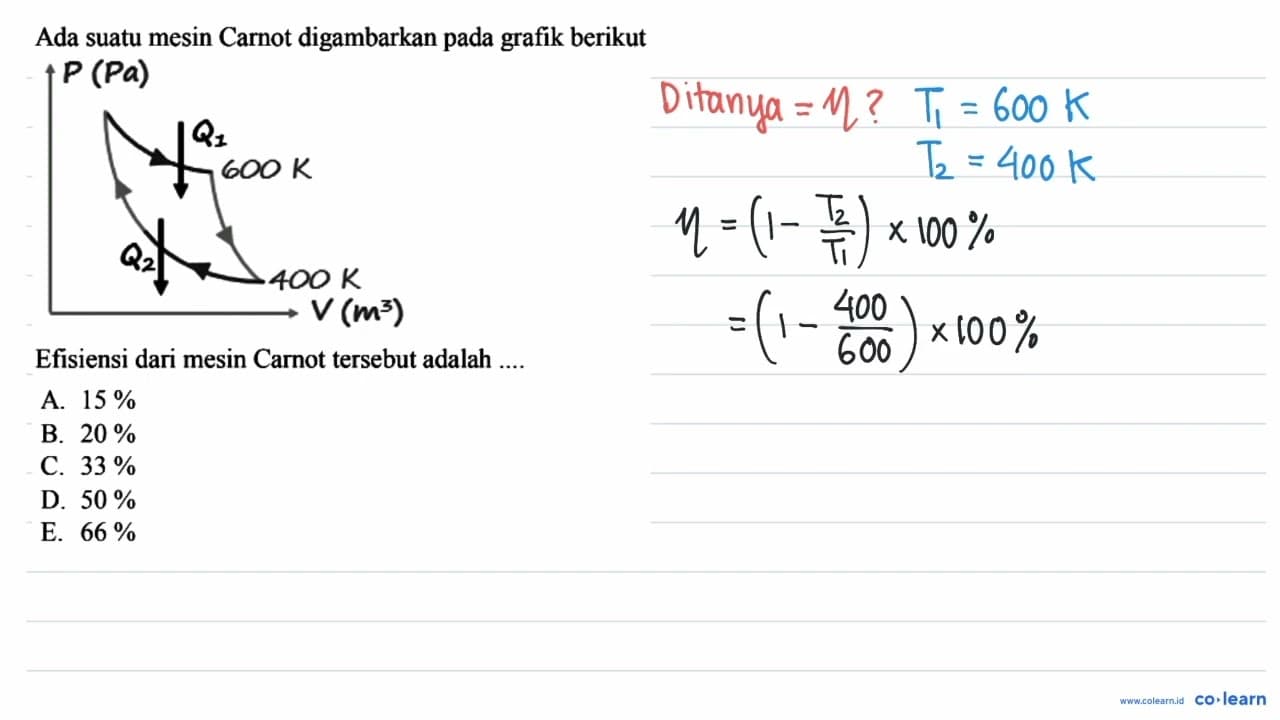 Ada suatu mesin Carnot digambarkan pada grafik berikut
P (Pa)
Q₁
600 K
Q₂
400 K
V (m³)
Efisiensi dari mesin Carnot tersebut adalah ....
A. 15 %
B. 20 %
C. 33 %
D. 50 %
E. 66 %
Ditanya = η? T₁ = 600 K
T₂ = 400 K
η = (1 - T₂/T₁) × 100 %
= (1 - 400/600) × 100 %
www.colearn.id co·learn